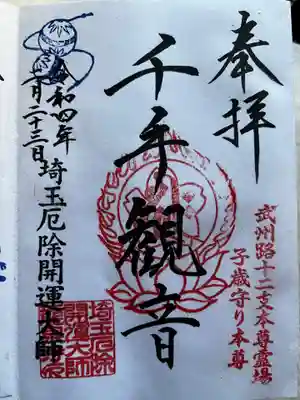 奉拝
武州路十二支本尊霊場
子歳守り本尊
千手観音
令和四年
月二十三日
埼玉厄除開運大師
埼玉厄除
開運大師